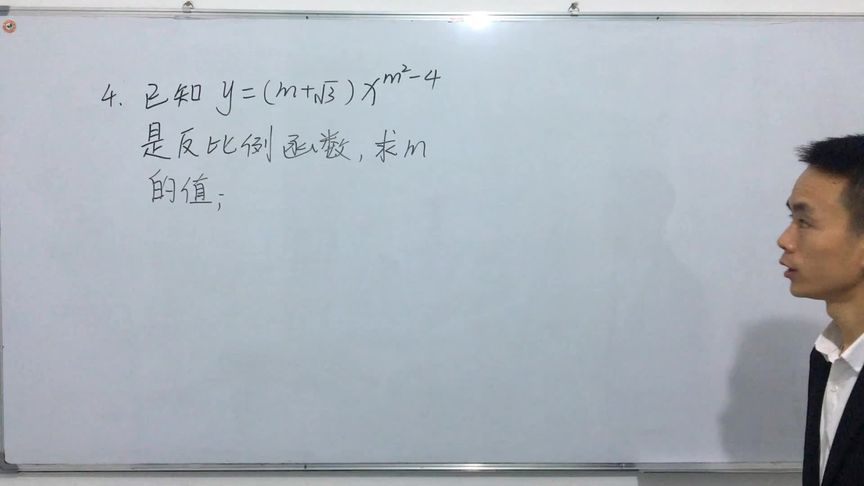 4. 已知 y=(m+√3)x^{m²-4}
是反比例函数,求m
的值;